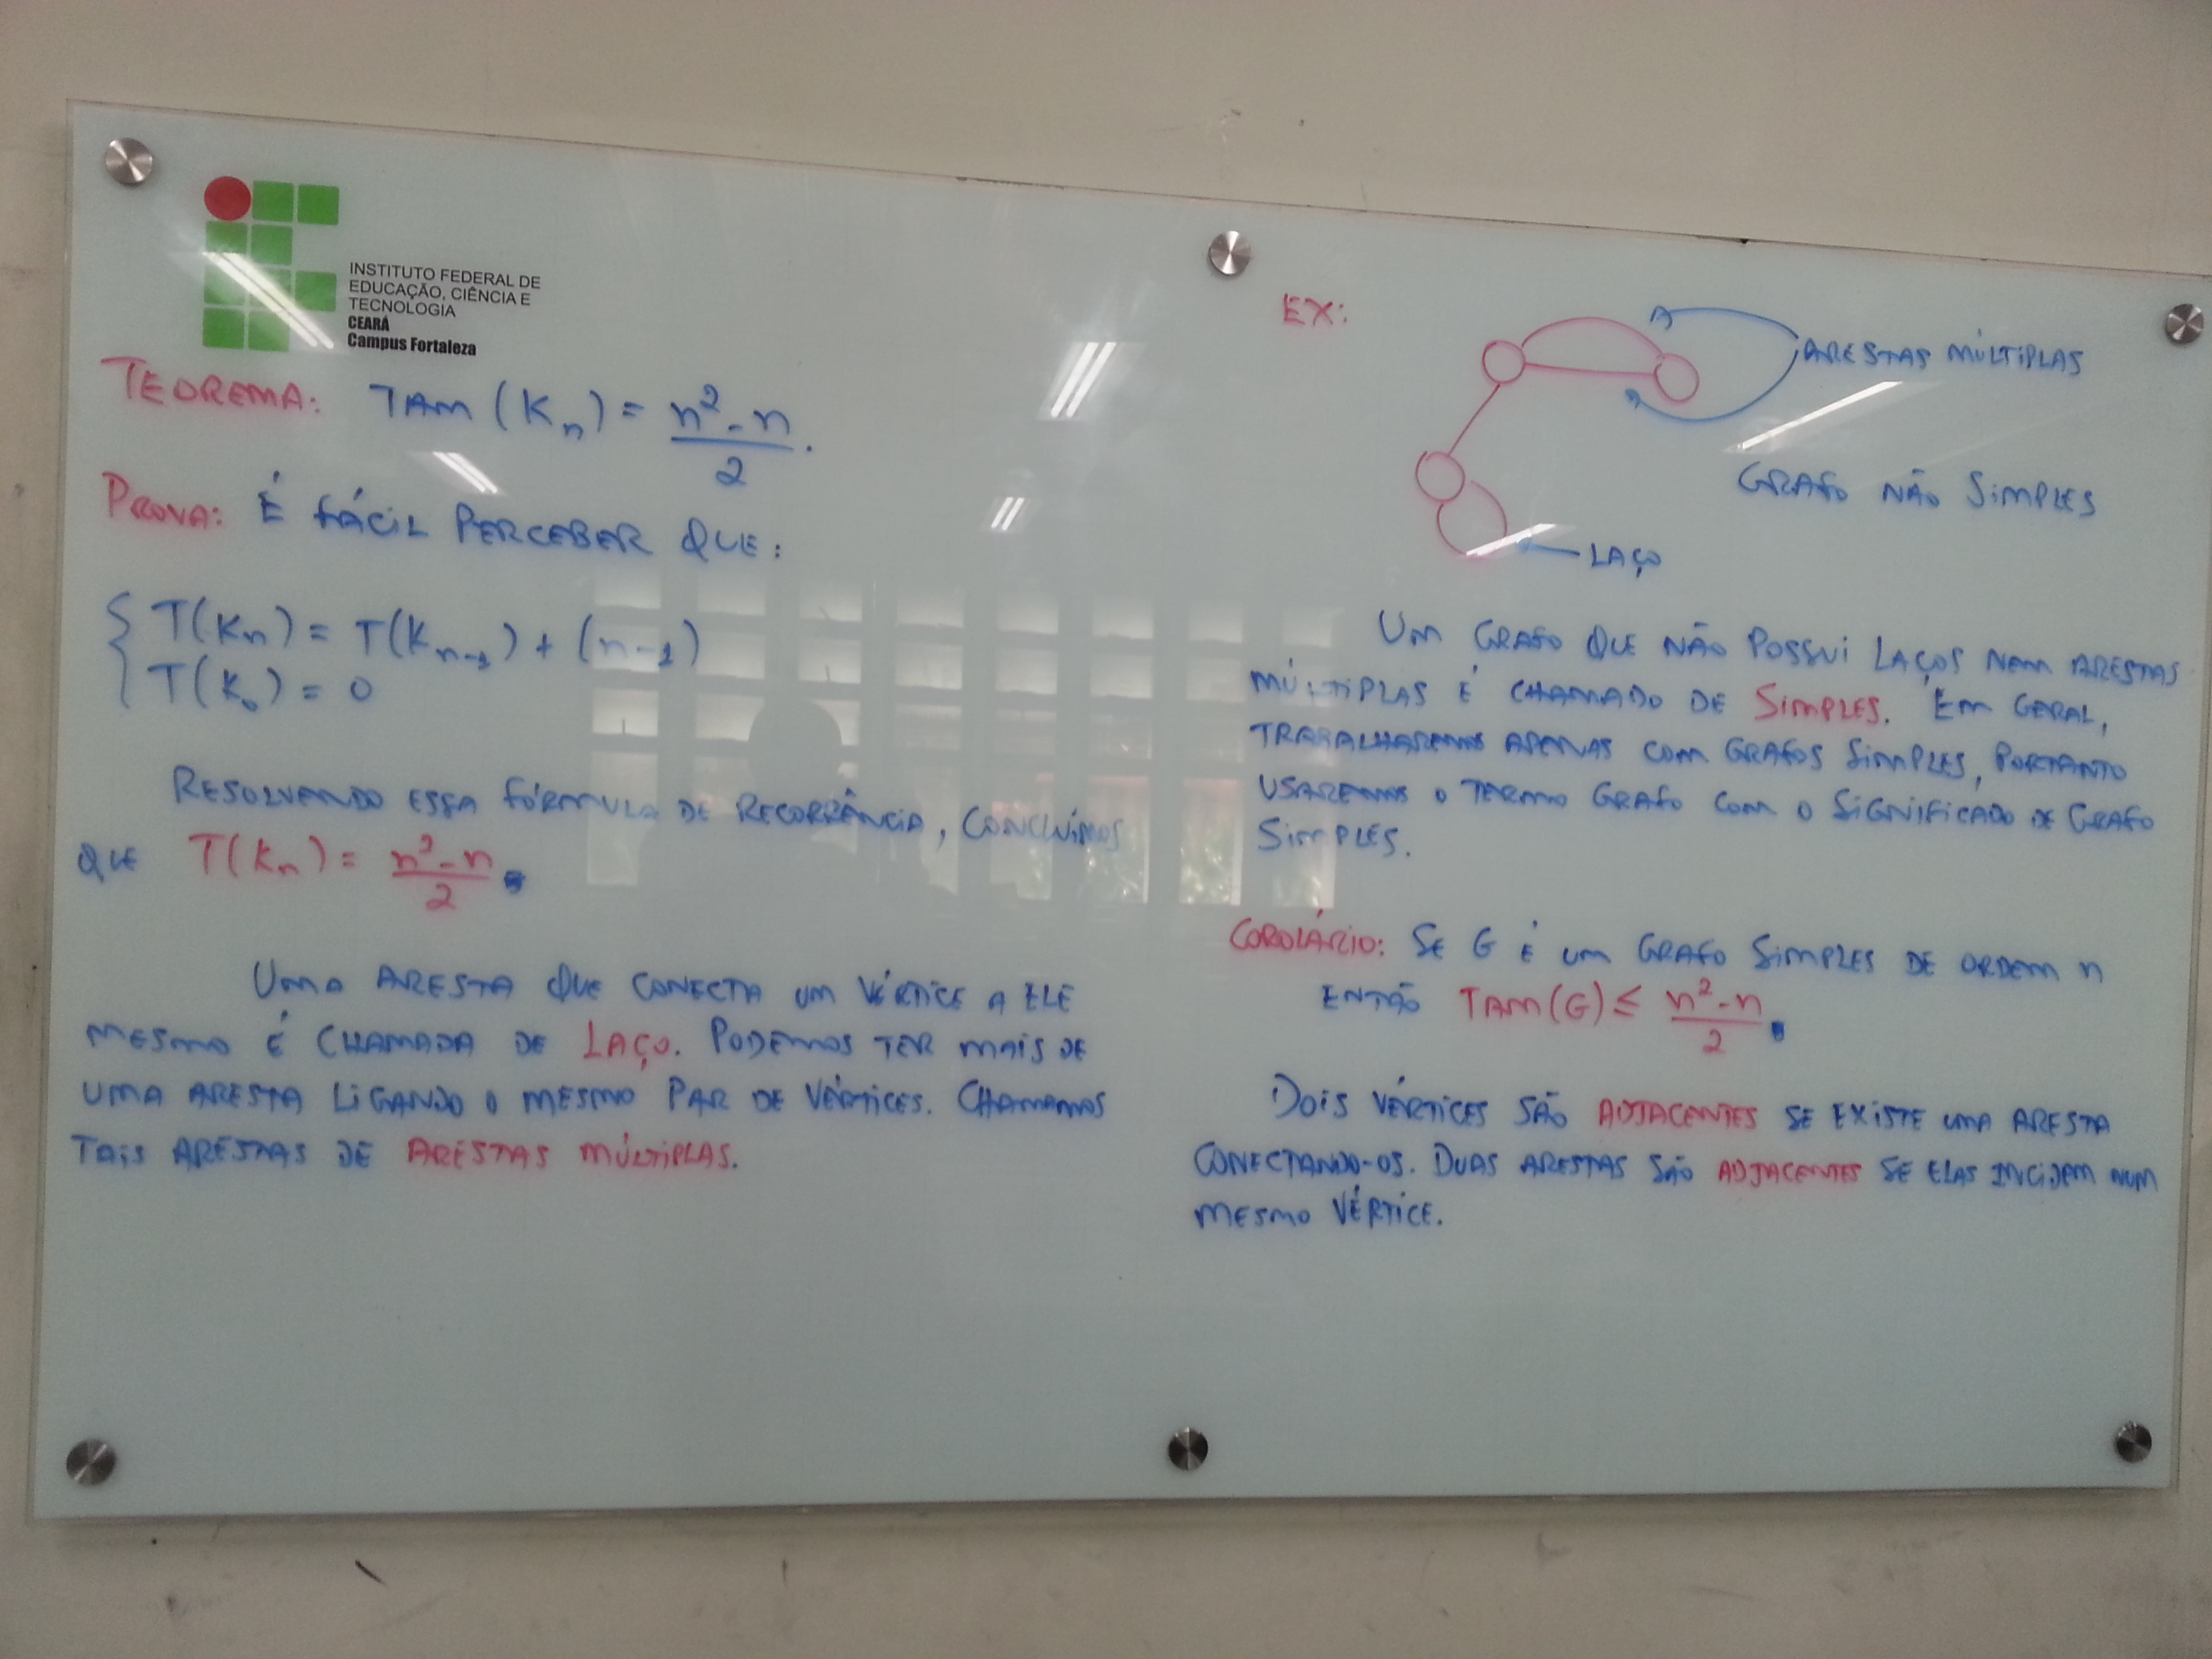 INSTITUTO FEDERAL DE
EDUCAÇÃO, CIÊNCIA E
TECNOLOGIA
CEARÁ
Campus Fortaleza
TEOREMA: TAM (Kₙ) = n² - n / 2.
PROVA: É FÁCIL PERCEBER QUE:
{ T(Kₙ) = T(Kₙ₋₁) + (n-1)
T(K₀) = 0
RESOLVENDO ESSA FÓRMULA DE RECORRÊNCIA, CONCLUÍMOS
QUE T(Kₙ) = n² - n / 2
UMA ARESTA QUE CONECTA UM VÉRTICE A ELE
MESMO É CHAMADA DE LAÇO. PODEMOS TER MAIS DE
UMA ARESTA LIGANDO O MESMO PAR DE VÉRTICES. CHAMAMOS
TAIS ARESTAS DE ARESTAS MÚLTIPLAS.
EX:
ARESTAS MÚLTIPLAS
GRAFO NÃO SIMPLES
LAÇO
UM GRAFO QUE NÃO POSSUI LAÇOS NEM ARESTAS
MÚLTIPLAS É CHAMADO DE SIMPLES. EM GERAL,
TRABALHAREMOS APENAS COM GRAFOS SIMPLES, PORTANTO
USAREMOS O TERMO GRAFO COM O SIGNIFICADO DE GRAFO
SIMPLES.
COROLÁRIO: SE G É UM GRAFO SIMPLES DE ORDEM n
ENTÃO TAM(G) ≤ n² - n / 2
DOIS VÉRTICES SÃO ADJACENTES SE EXISTE UMA ARESTA
CONECTANDO-OS. DUAS ARESTAS SÃO ADJACENTES SE ELAS INCIDEM NUM
MESMO VÉRTICE.